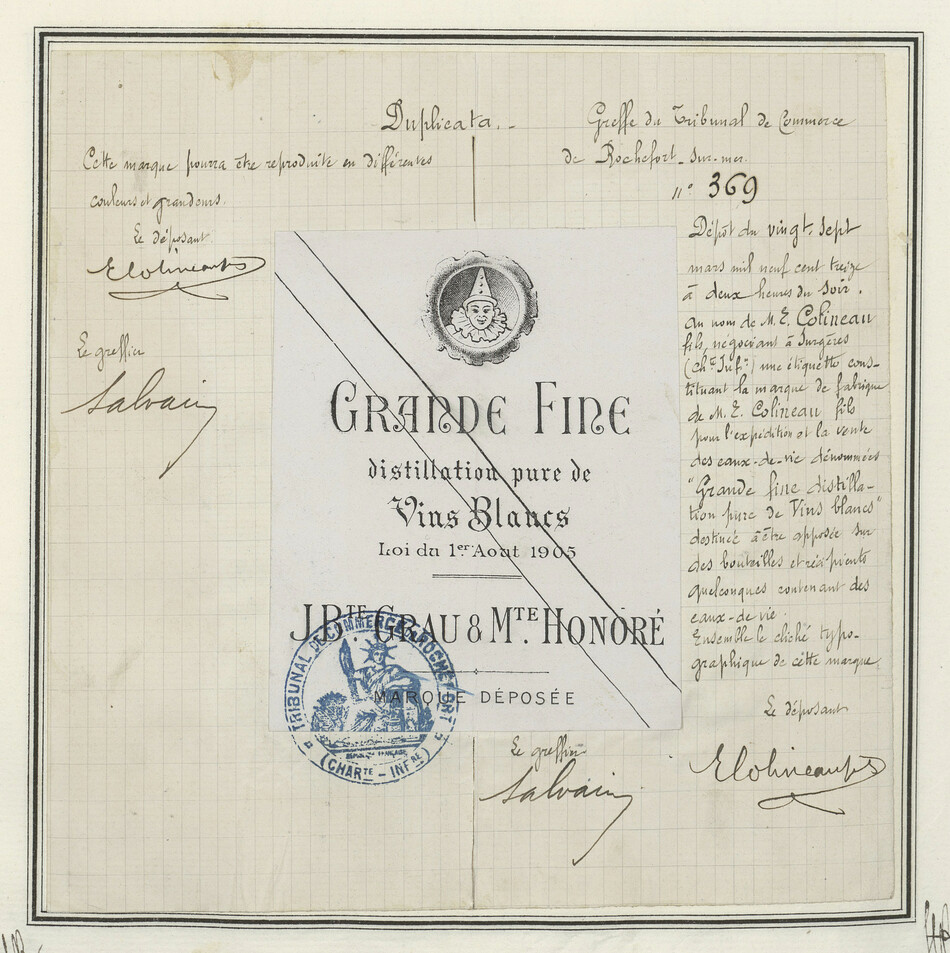 Duplicata.
Cette marque pourra être reproduite en différentes
couleurs et grandeurs.
Le déposant
EColineaufils
Le greffier
Salvain
Greffe du Tribunal de Commerce
de Rochefort-sur-mer.
n° 369
Dépôt du vingt-sept
mars mil neuf cent treize
à deux heures du soir.
au nom de M. E. Colineau
fils, négociant à Surgères
(Chte Infre) une étiquette cons-
tituant la marque de fabrique
de M. E. Colineau fils
pour l'expédition et la vente
des eaux-de-vie dénommées
"Grande fine distilla-
tion pure de Vins blancs"
destinée à être apposée sur
des bouteilles et récipients
quelconques contenant des
eaux-de-vie.
Ensemble le cliché typo-
graphique de cette marque.
Le déposant
EColineaufils
Le greffier
Salvain
GRANDE FINE
distillation pure de
Vins Blancs
Loi du 1er Aout 1905
J. BTE GRAU & MTE HONORÉ
MARQUE DÉPOSÉE
TRIBUNAL DE COMMERCE ROCHEFORT
(CHARTE - INFRE)